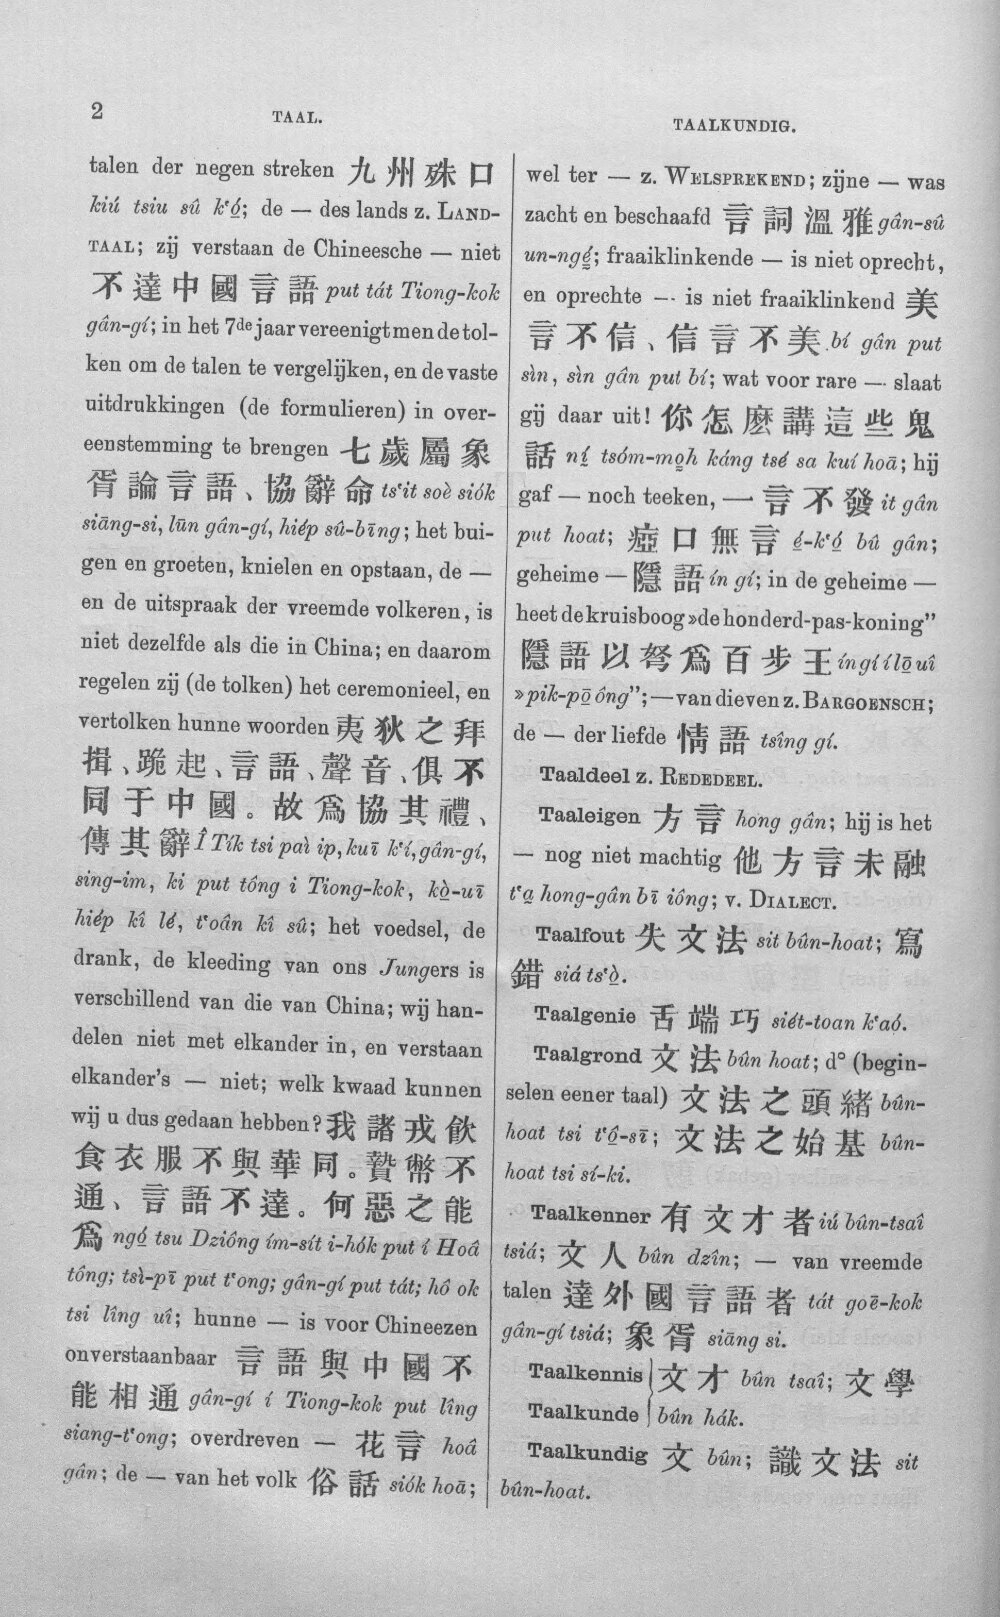 2
TAAL.
TAALKUNDIG.
talen der negen streken 九州殊口
kiú tsiu sû kʻó̤; de — des lands z. LAND-
TAAL; zij verstaan de Chineesche — niet
不達中國言語 put tát Tiong-kok
gân-gí; in het 7de jaar vereenigt men de tol-
ken om de talen te vergelijken, en de vaste
uitdrukkingen (de formulieren) in over-
eenstemming te brengen 七歲屬象
胥論言語、協辭命 tsʻit soè siók
siāng-si, lūn gân-gí, hiép sû-bīng; het bui-
gen en groeten, knielen en opstaan, de —
en de uitspraak der vreemde volkeren, is
niet dezelfde als die in China; en daarom
regelen zij (de tolken) het ceremonieel, en
vertolken hunne woorden 夷狄之拜
揖、跪起、言語、聲音、俱不
同于中國。故爲協其禮、
傳其辭 Î Tík tsi paì ip, kuī kʻí, gân-gí,
sing-im, ki put tông i Tiong-kok, kò̤-uī
hiép kî lé, tʻoân kî sû; het voedsel, de
drank, de kleeding van ons Jungers is
verschillend van die van China; wij han-
delen niet met elkander in, en verstaan
elkander's — niet; welk kwaad kunnen
wij u dus gedaan hebben? 我諸戎飲
食衣服不與華同。贄幣不
通、言語不達。何惡之能
爲 ngó̤ tsu Dziông ím-sít i-hók put í Hoâ
tông; tsì-pī put tʻong; gân-gí put tát; hô ok
tsi lîng uî; hunne — is voor Chineezen
onverstaanbaar 言語與中國不
能相通 gân-gí í Tiong-kok put lîng
siang-tʻong; overdreven — 花言 hoâ
gân; de — van het volk 俗話 siók hoā;
wel ter — z. WELSPREKEND; zijne — was
zacht en beschaafd 言詞溫雅 gân-sû
un-ngé̤; fraaiklinkende — is niet oprecht,
en oprechte — is niet fraaiklinkend 美
言不信、信言不美 bí gân put
sìn, sìn gân put bí; wat voor rare — slaat
gij daar uit! 你怎麽講這些鬼
話 ní̤ tsóm-mo̤h káng tsé sa kuí hoā; hij
gaf — noch teeken, 一言不發 it gân
put hoat; 瘂口無言 é̤-kʻó̤ bû gân;
geheime — 隱語 ín gí; in de geheime —
heet de kruisboog »de honderd-pas-koning"
隱語以弩爲百步王 ín gí í lō̤ uî
»pik-pō̤ ông"; — van dieven z. BARGOENSCH;
de — der liefde 情語 tsîng gí.
Taaldeel z. REDEDEEL.
Taaleigen 方言 hong gân; hij is het
— nog niet machtig 他方言未融
tʻa̤ hong-gân bī iông; v. DIALECT.
Taalfout 失文法 sit bûn-hoat; 寫
錯 siá tsʻò̤.
Taalgenie 舌端巧 siét-toan kʻaó.
Taalgrond 文法 bûn hoat; d° (begin-
selen eener taal) 文法之頭緒 bûn-
hoat tsi tʻô̤-sī; 文法之始基 bûn-
hoat tsi sí-ki.
Taalkenner 有文才者 iú bûn-tsaî
tsiá; 文人 bûn dzîn; — van vreemde
talen 達外國言語者 tát goē-kok
gân-gí tsiá; 象胥 siāng si.
Taalkennis 文才 bûn tsaî; 文學
Taalkunde bûn hák.
Taalkundig 文 bûn; 識文法 sit
bûn-hoat.